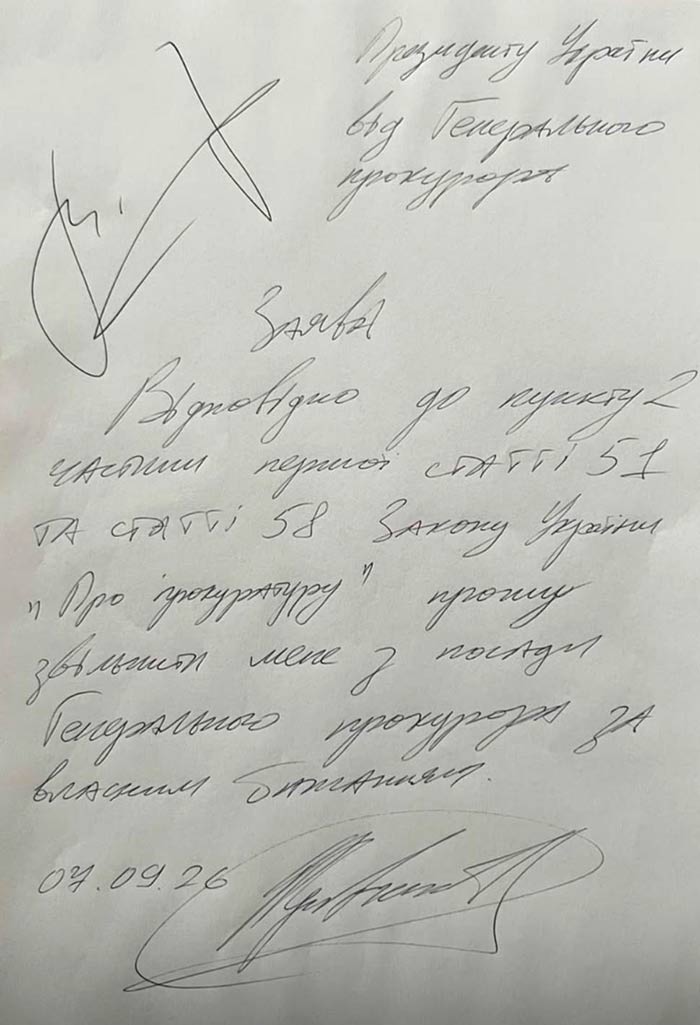 Президенту України
від Генерального
прокурора
Заява
Відповідно до пункту 2
частини першої статті 51
та статті 58 Закону України
"Про прокуратуру" прошу
звільнити мене з посади
Генерального прокурора за
власним бажанням.
07.09.26